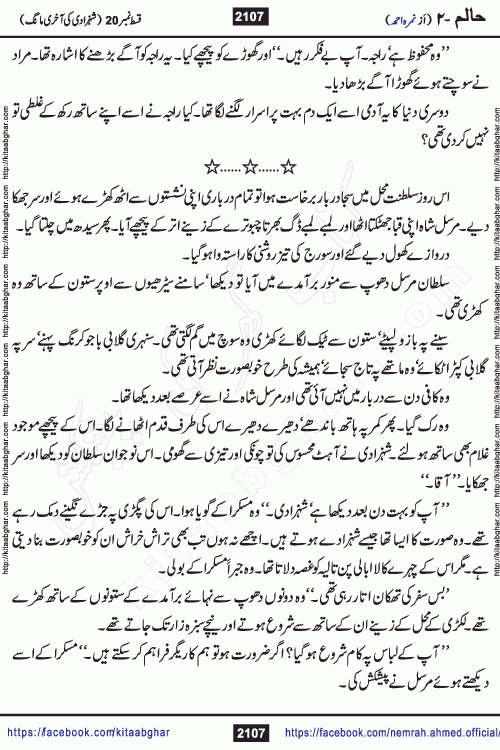 حالم -۲ (از نمرہ احمد) 2107 قسط نمبر 20 (شہزادی کی آخری مانگ)
’’وہ محفوظ ہے‘ راجہ۔ آپ بے فکر رہیں۔‘‘ اور گھوڑے کو پیچھے کیا۔ یہ راجہ کو آگے بڑھنے کا اشارہ تھا۔ مراد
نے سوچتے ہوئے گھوڑا آگے بڑھا دیا۔
دوسری دنیا کا یہ آدمی اسے ایک دم بہت پراسرار لگنے لگا تھا۔ کیا راجہ نے اسے اپنے ساتھ رکھ کے غلطی تو
نہیں کر دی تھی؟
☆......☆......☆
اس روز سلطنت محل میں سجا دربار برخاست ہوا تو تمام درباری اپنی نشستوں سے اٹھ کھڑے ہوئے اور سر جھکا
دیے۔ مرسل شاہ اپنی قبا جھٹکتا اٹھا اور لمبے لمبے ڈگ بھرتا چبوترے کے زینے اتر کے پیچھے آیا۔ پھر سیدھ میں چلتا گیا۔
دروازے کھول دیے گئے اور سورج کی تیز روشنی کا راستہ وا ہو گیا۔
سلطان مرسل دھوپ سے منور برآمدے میں آیا تو دیکھا‘ سامنے سیڑھیوں سے اوپر ستون کے ساتھ وہ
کھڑی تھی۔
سینے پہ بازو لپیٹے‘ ستون سے ٹیک لگائے کھڑی وہ سوچ میں گم لگتی تھی۔ سنہری گلابی باجو کرنگ پہنے‘ سر پہ
گلابی کپڑا اٹکائے‘ وہ ماتھے پہ تاج سجائے‘ ہمیشہ کی طرح خوبصورت نظر آتی تھی۔
وہ کافی دن سے دربار میں نہیں آئی تھی اور مرسل شاہ نے اسے عرصے بعد دیکھا تھا۔
وہ رک گیا۔ پھر کمر پہ ہاتھ باندھے‘ دھیرے دھیرے اس کی طرف قدم اٹھانے لگا۔ اس کے پیچھے موجود
غلام بھی ساتھ ہو لئے۔ شہزادی نے آہٹ محسوس کی تو چونکی اور تیزی سے گھومی۔ اس نوجوان سلطان کو دیکھا اور سر
جھکایا۔ ’’آقا۔‘‘
’’آپ کو بہت دن بعد دیکھا ہے‘ شہزادی۔‘‘ وہ مسکرا کے گویا ہوا۔ اس کی پگڑی پہ جڑے نگینے دمک رہے
تھے۔ وہ صورت کا ایسا تھا جیسے شہزادے ہوتے ہیں۔ اچھے نہ ہوں تب بھی تراش خراش ان کو خوبصورت بنا دیتی
ہے۔ مگر اس کے چہرے کا لا ابالی پن تالیہ کو غصہ دلاتا تھا۔ وہ جبراً مسکرا کے بولی۔
’بس سفر کی تھکان اتار رہی تھی۔‘‘ وہ دونوں دھوپ سے نہائے برآمدے کے ستونوں کے ساتھ کھڑے
تھے۔ لکڑی کے محل کے زینے ان کے ساتھ سے شروع ہوتے اور نیچے سبزہ زار تک جاتے تھے۔
’’آپ کے لباس پہ کام شروع ہو گیا؟ اگر ضرورت ہو تو ہم کاریگر فراہم کر سکتے ہیں۔‘‘ مسکرا کے اسے
دیکھتے ہوئے مرسل نے پیشکش کی۔
https://facebook.com/kitaabghar 2107 https://facebook.com/nemrah.ahmed.official/
http://kitaabghar.com http://kitaabghar.com http://kitaabghar.com http://kitaabghar.com http://kitaabghar.com